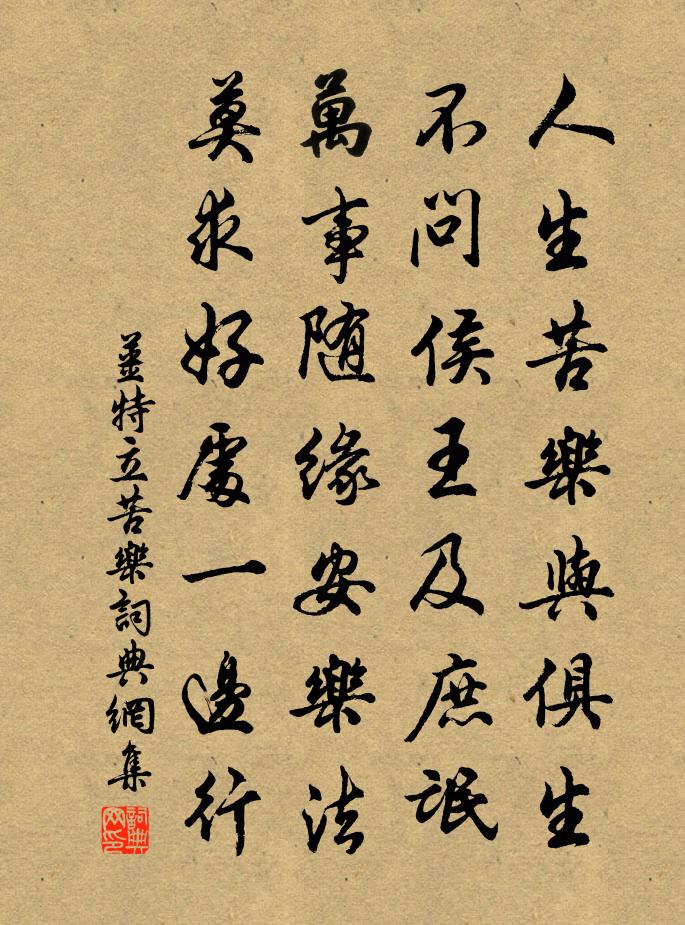 人生苦樂與俱生
不問侯王及庶氓
萬事随緣安樂法
莫求好處一邊行
薑特立苦樂詞典網集
詞典网印